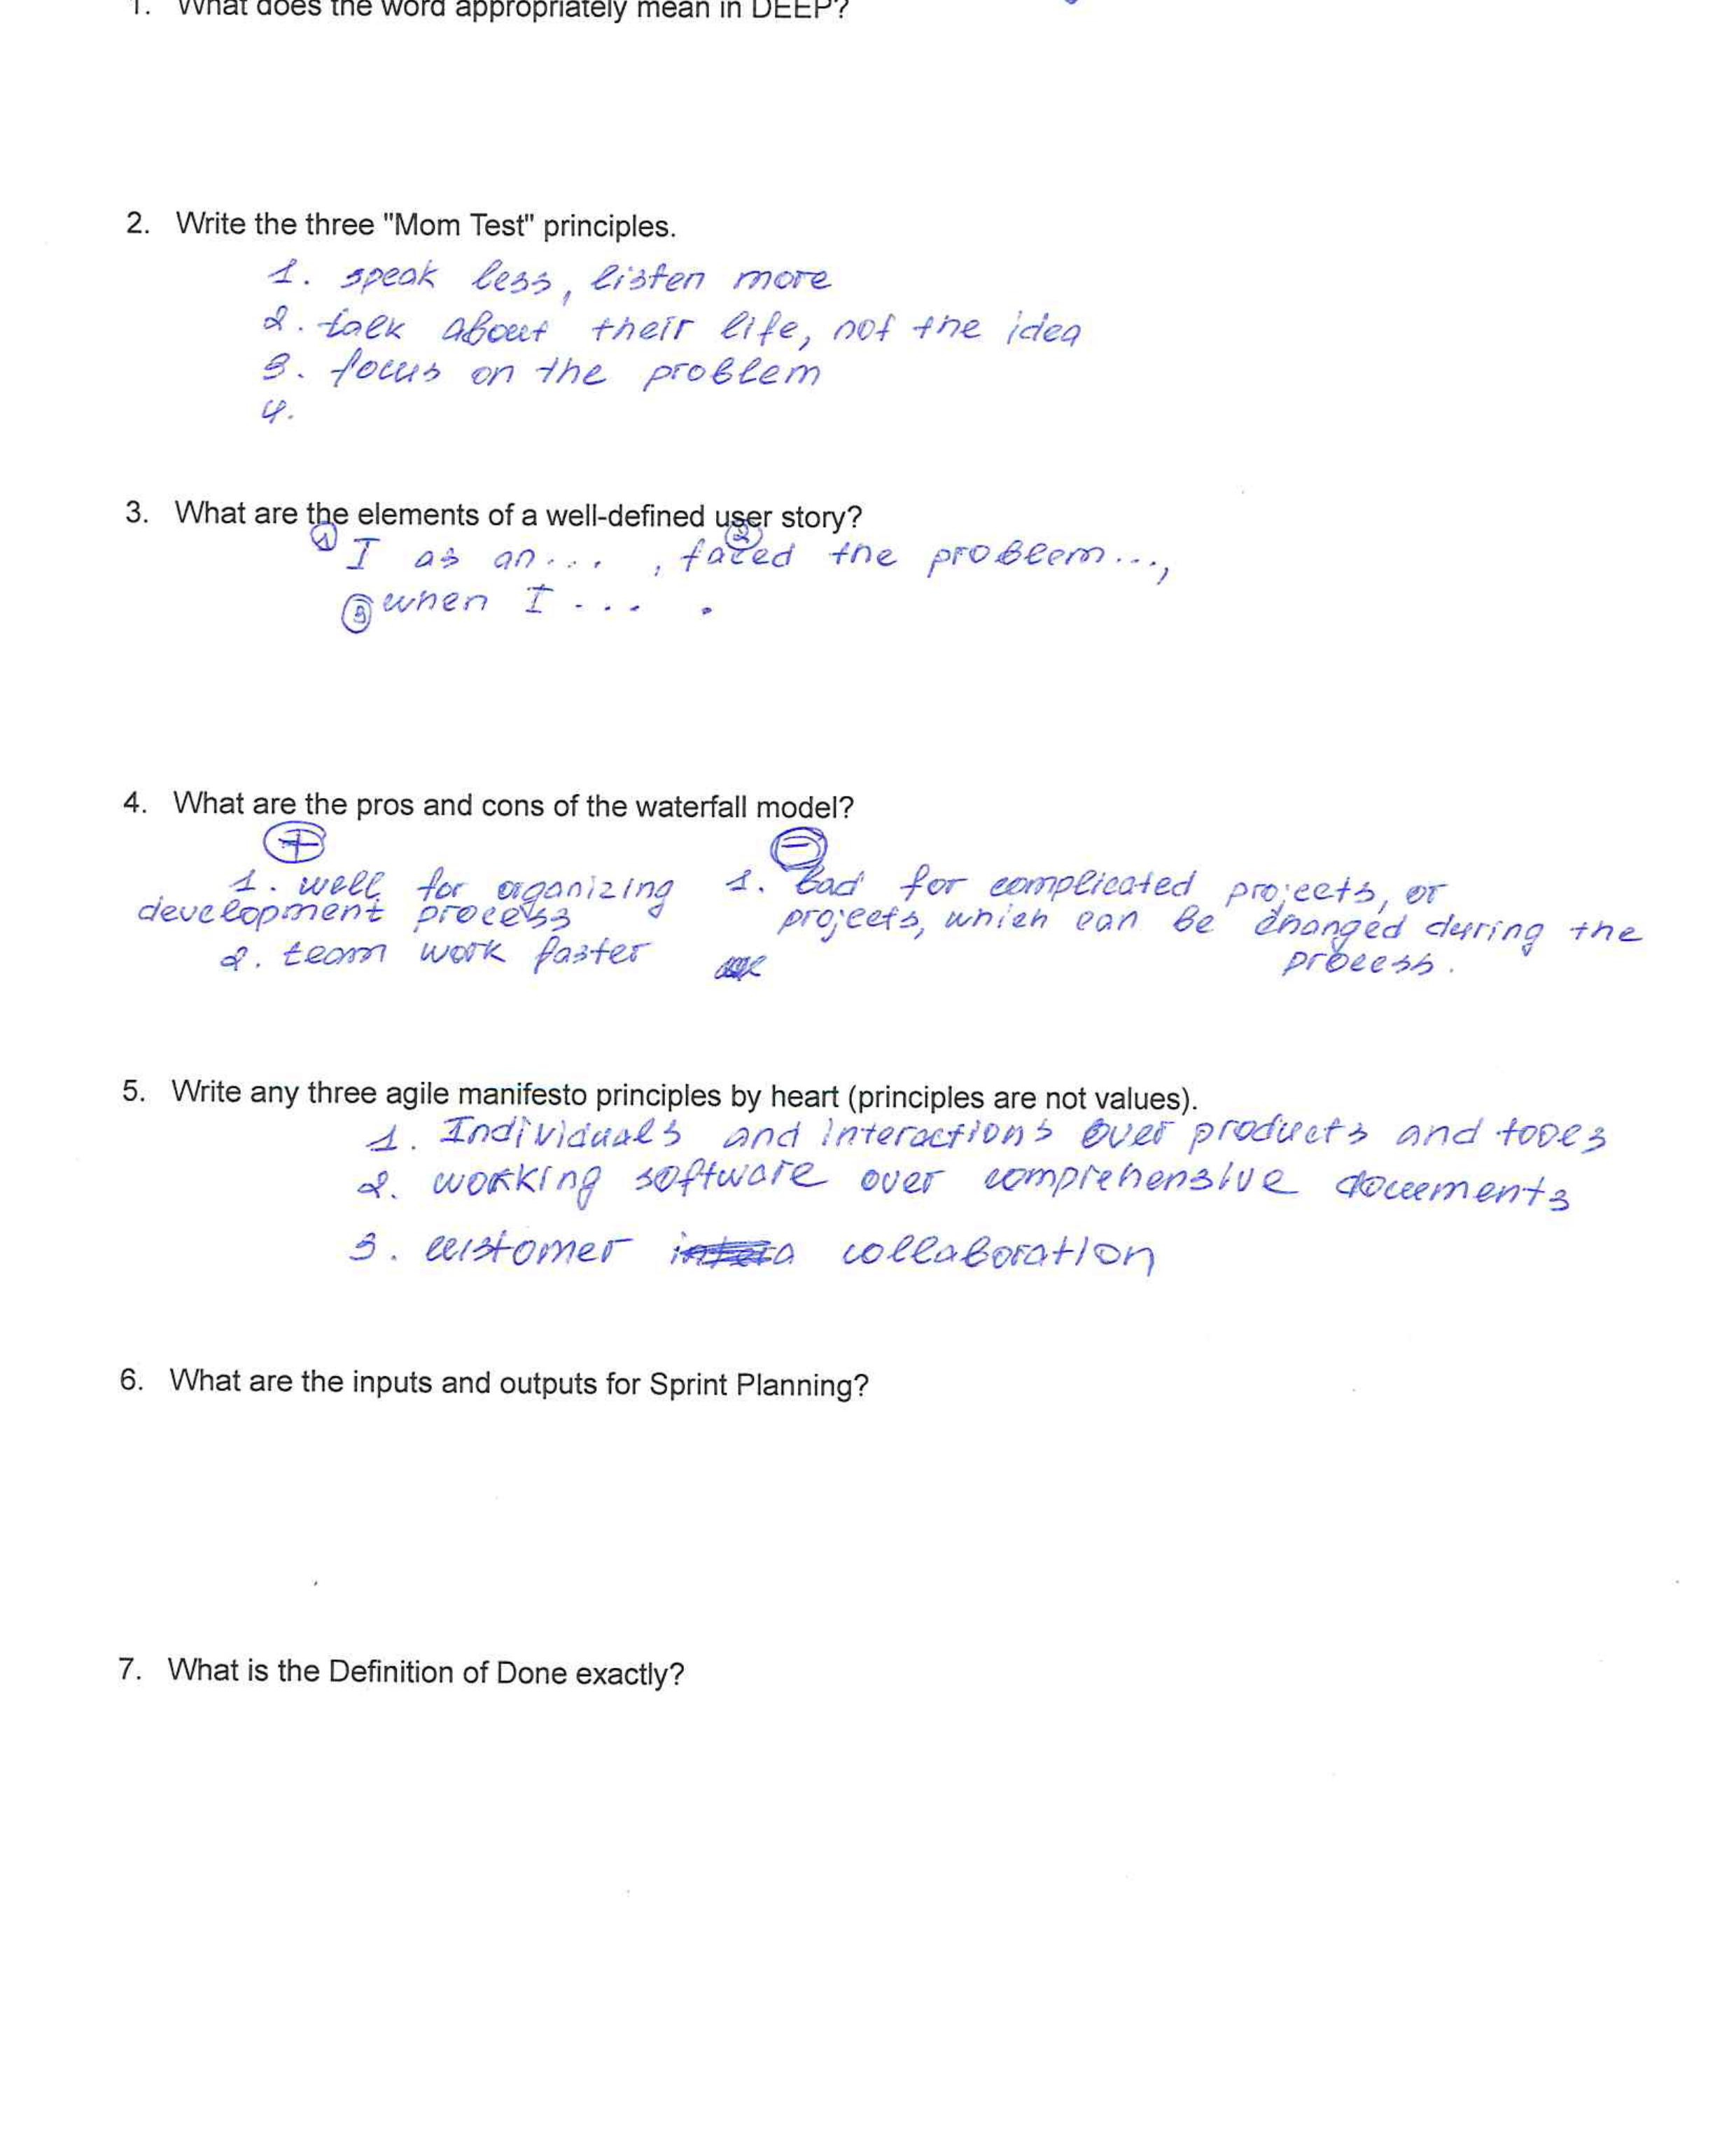 1. What does the word appropriately mean in DEEP?
2. Write the three "Mom Test" principles.
1. speak less, listen more
2. talk about their life, not the idea
3. focus on the problem
4.
3. What are the elements of a well-defined user story?
① I as an... , ② faced the problem...,
③ when I ... .
4. What are the pros and cons of the waterfall model?
+ −
1. well for organizing 1. bad for complicated projects, or
development process projects, which can be changed during the
2. team work faster process.
5. Write any three agile manifesto principles by heart (principles are not values).
1. Individuals and interactions over products and tools
2. working software over comprehensive documents
3. customer collaboration
6. What are the inputs and outputs for Sprint Planning?
7. What is the Definition of Done exactly?